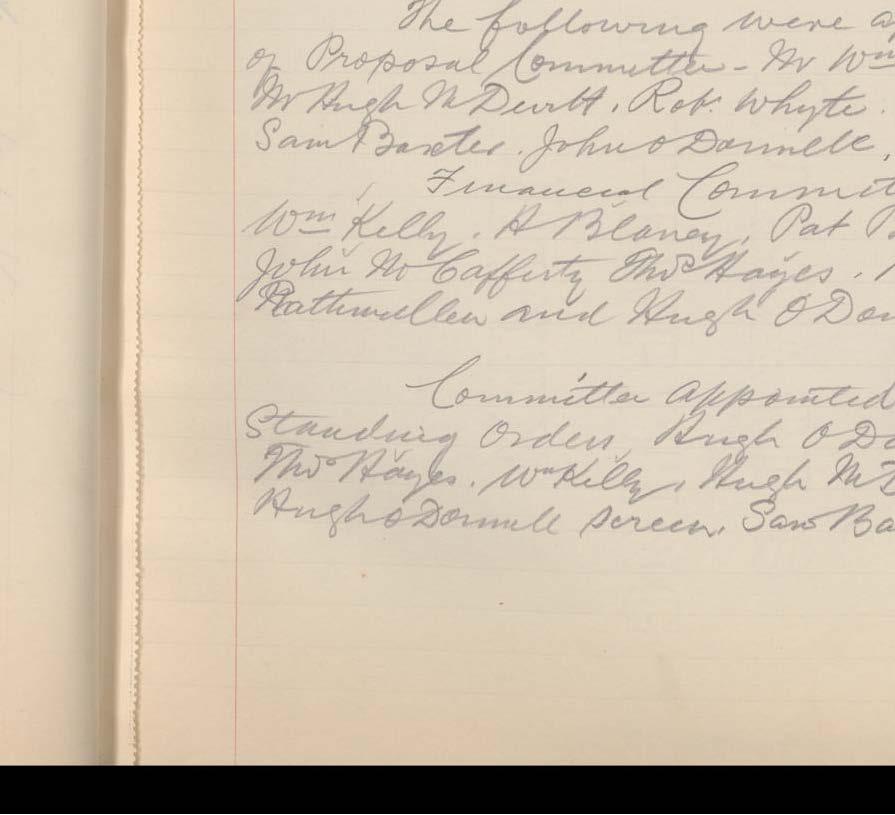 The following were a
of Proposal Committee - Mr Wm
Mr Hugh McDevitt, Rob. Whyte.
Sam Baxter. John O Donnell,
Financial Commit
Wm Kelly. H Blaney, Pat
John McCafferty Thos Hayes.
Rathmullen and Hugh O Don
Committee appointed
Standing Orders, Hugh O Do
Thos Hayes. Wm Kelly, Hugh McD
Hugh O Donnell Screen, Sam Ba